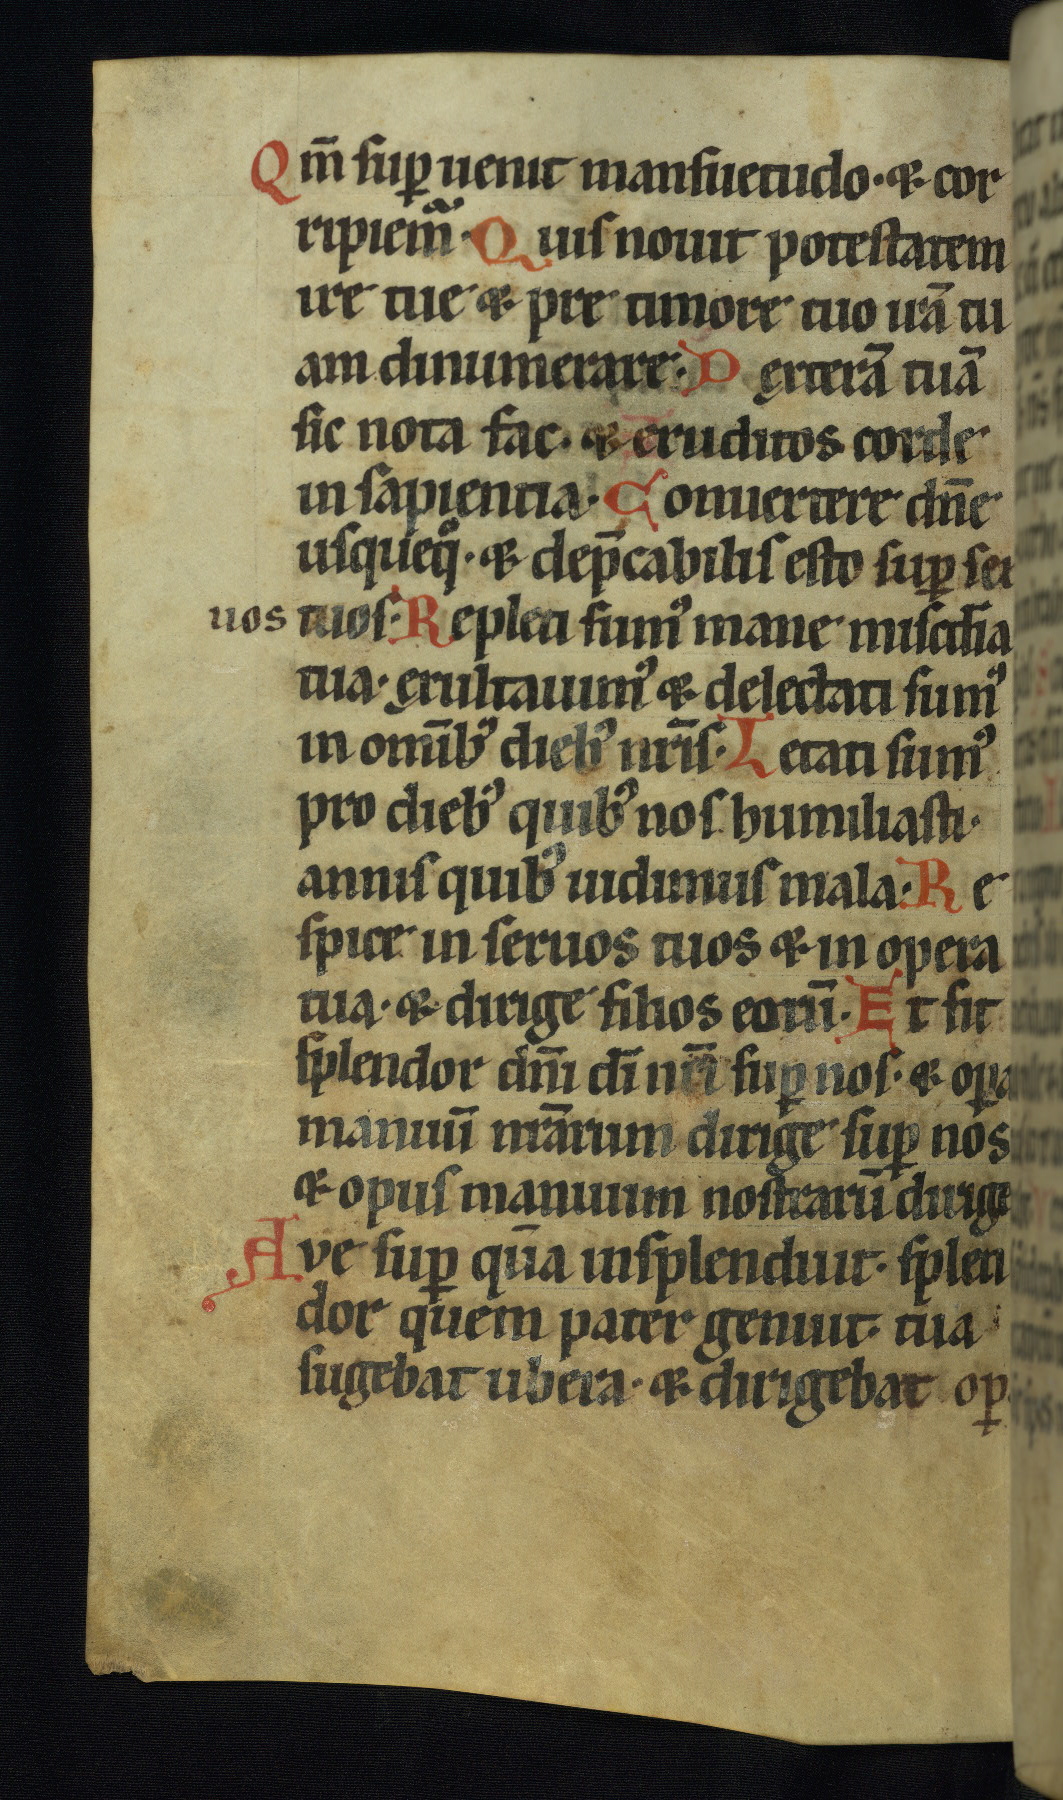 Qm̄ suꝑuenit mansuetudo· ⁊ cor
ripiem̄· Quis nouit potestatem
ire tue ⁊ pre timore tuo irā tu
am dinumerare· Dexterā tuā
sic notā fac· ⁊ eruditos corde
in sapientia· Conuertere dn̄e
usqueqͦ· ⁊ dep̄cabilis esto suꝑ ser
uos tuos· Repleti sumꝰ mane misc̄dia
tua· exultauimꝰ ⁊ delectati sumꝰ
in omībꝰ diebꝰ nr̄is· Letati sumꝰ
pro diebꝰ quibꝰ nos humiliasti·
annis quibꝰ uidimus mala· Re
spice in seruos tuos ⁊ in opera
tua· ⁊ dirige filios eorū· Et sit
splendor dn̄i dī nr̄i suꝑ nos· ⁊ oꝑa
manuū nr̄arum dirige suꝑ nos
⁊ opus manuum nostrarū dirige
Ave suꝑ quā insplenduit· splen
dor quem pater genuit· tua
sugebat ubera· ⁊ dirigebat oꝑ